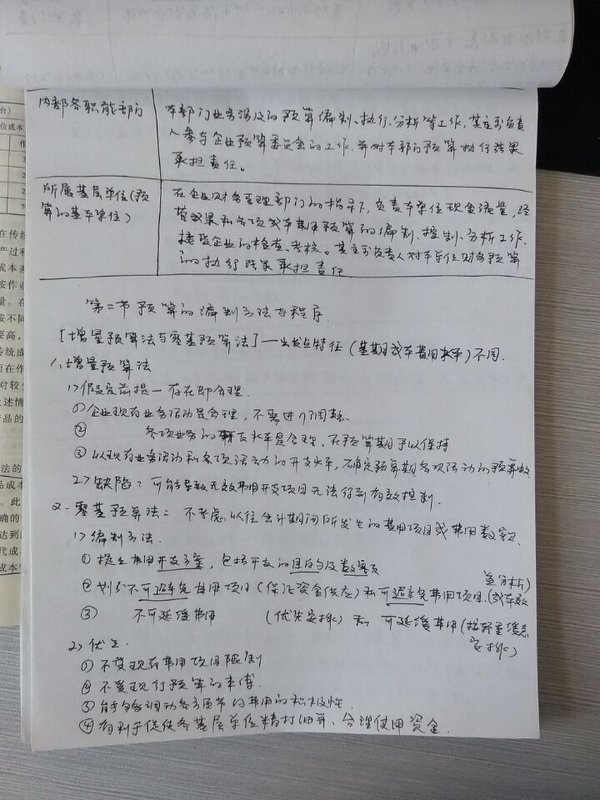 内部各职能部门
本部门业务涉及的预算编制、执行、分析等工作,其主要负责
人参与企业预算委员会的工作,并对本部门预算执行结果
承担责任。
所属基层单位(预
算的基本单位)
在企业财务管理部门的指导下,负责本单位现金流量、经
营成果和各项成本费用预算的编制、控制、分析工作,
接受企业的检查、考核。其主要负责人对本单位财务预算
的执行结果承担责任
第二节 预算的编制方法与程序
[增量预算法与零基预算法]—出发点特征(基期成本费用水平)不同.
1、增量预算法
1)假定前提—存在即合理.
①企业现有业务活动是合理,不需进行调整.
② 各项业务的开支水平是合理,在预算期予以保持
③以现有业务活动和各项活动的开支水平,确定预算期各项活动的预算数
2)缺陷:可能导致无效费用开支项目无法得到有效控制.
2.零基预算法:不考虑以往会计期间所发生的费用项目或费用数额.
1)编制方法.
①提出费用开支方案,包括开支的目的及数额
②划分不可避免费用项目(保证资金供应)和可避免费用项目.(成本效
益分析)
③ 不可延缓费用 (优先安排) 和 可延缓费用(按轻重缓急
安排)
2)优点.
①不受现有费用项目限制
②不受现行预算的束缚
③能够调动各方面节约费用的积极性.
④有利于促使各基层单位精打细算、合理使用资金.